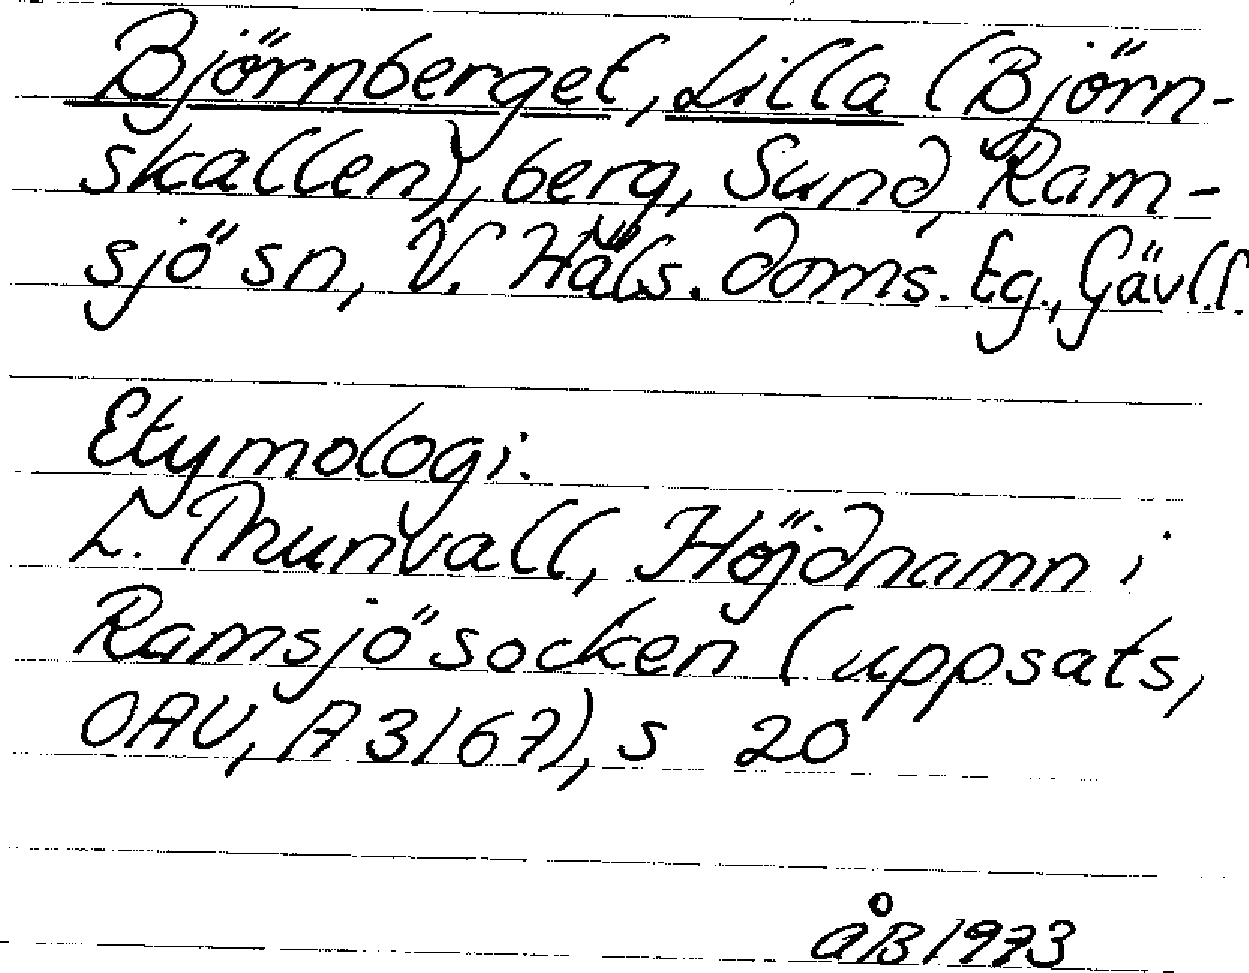 Björnberget, Lilla (Björn-
skallen), berg, Sund, Ram-
sjö sn, V. Häls. doms. tg., Gävl.l.
Etymologi.
L. Thunvall, Höjdnamn i
Ramsjö socken (uppsats,
OAU, A 3167), s 20
åB 1973